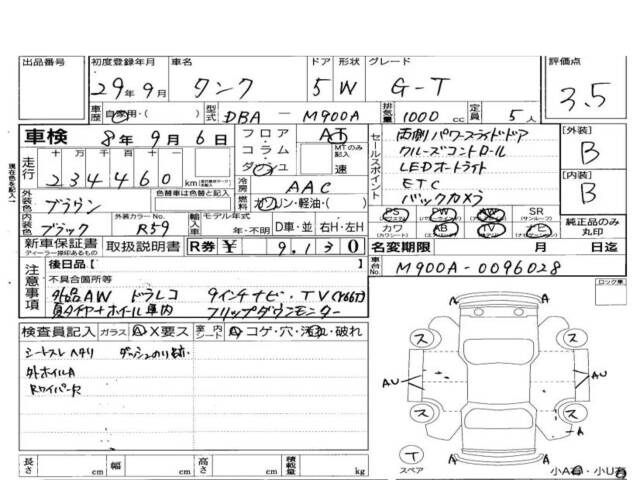 出品番号 初度登録年月 車名 ドア 形状 グレード 評価点
29年9月 タンク 5 W G-T 3.5
車歴 自家用・( ) 型式 DBA - M900A 排気量 1000 cc 定員 5人
車検 8年9月6日 フロア AT
コラム MTのみ記入
ダッシュ 速
走行 十万 千百十一
234460 km
冷房 AAC
燃料 ガソリン・軽油・( )
セールスポイント
両側パワースライドドア
クルーズコントロール
LEDオートライト
ETC
バックカメラ
[外装] B
[内装] B
外装色 ブラウン 色替車は色替と記入
内装色 ブラック 外装カラーNo. R59 輸入車 モデル年式 年・不明 D車・並 右H・左H
PS PW AW SR (サンルーフ)
カワ (カワシート) AB TV ナビ
純正品のみ丸印
新車保証書 取扱説明書 R券 ¥ 9,130
ディーラー捺印あるもの
名変期限 月 日迄
車台No. M900A-0096028
注意事項
後日品[ ]
不具合箇所等
外品AW ドラレコ 9インチナビ・TV(Y66T)
夏タイヤホイール車内 フリップダウンモニター
検査員記入 ガラス A X要ス 室内シート コゲ・穴・汚れ・破れ
シートスレ ヘタリ ダッシュのり跡
外ホイルA
Rワイパーヌ
長さ cm 幅 cm 高さ cm 積載量 kg
現在色を記入
ロック車
A A
ス ス
AU AU
ス ス
A
A A
T
スペア
小A有・小U有